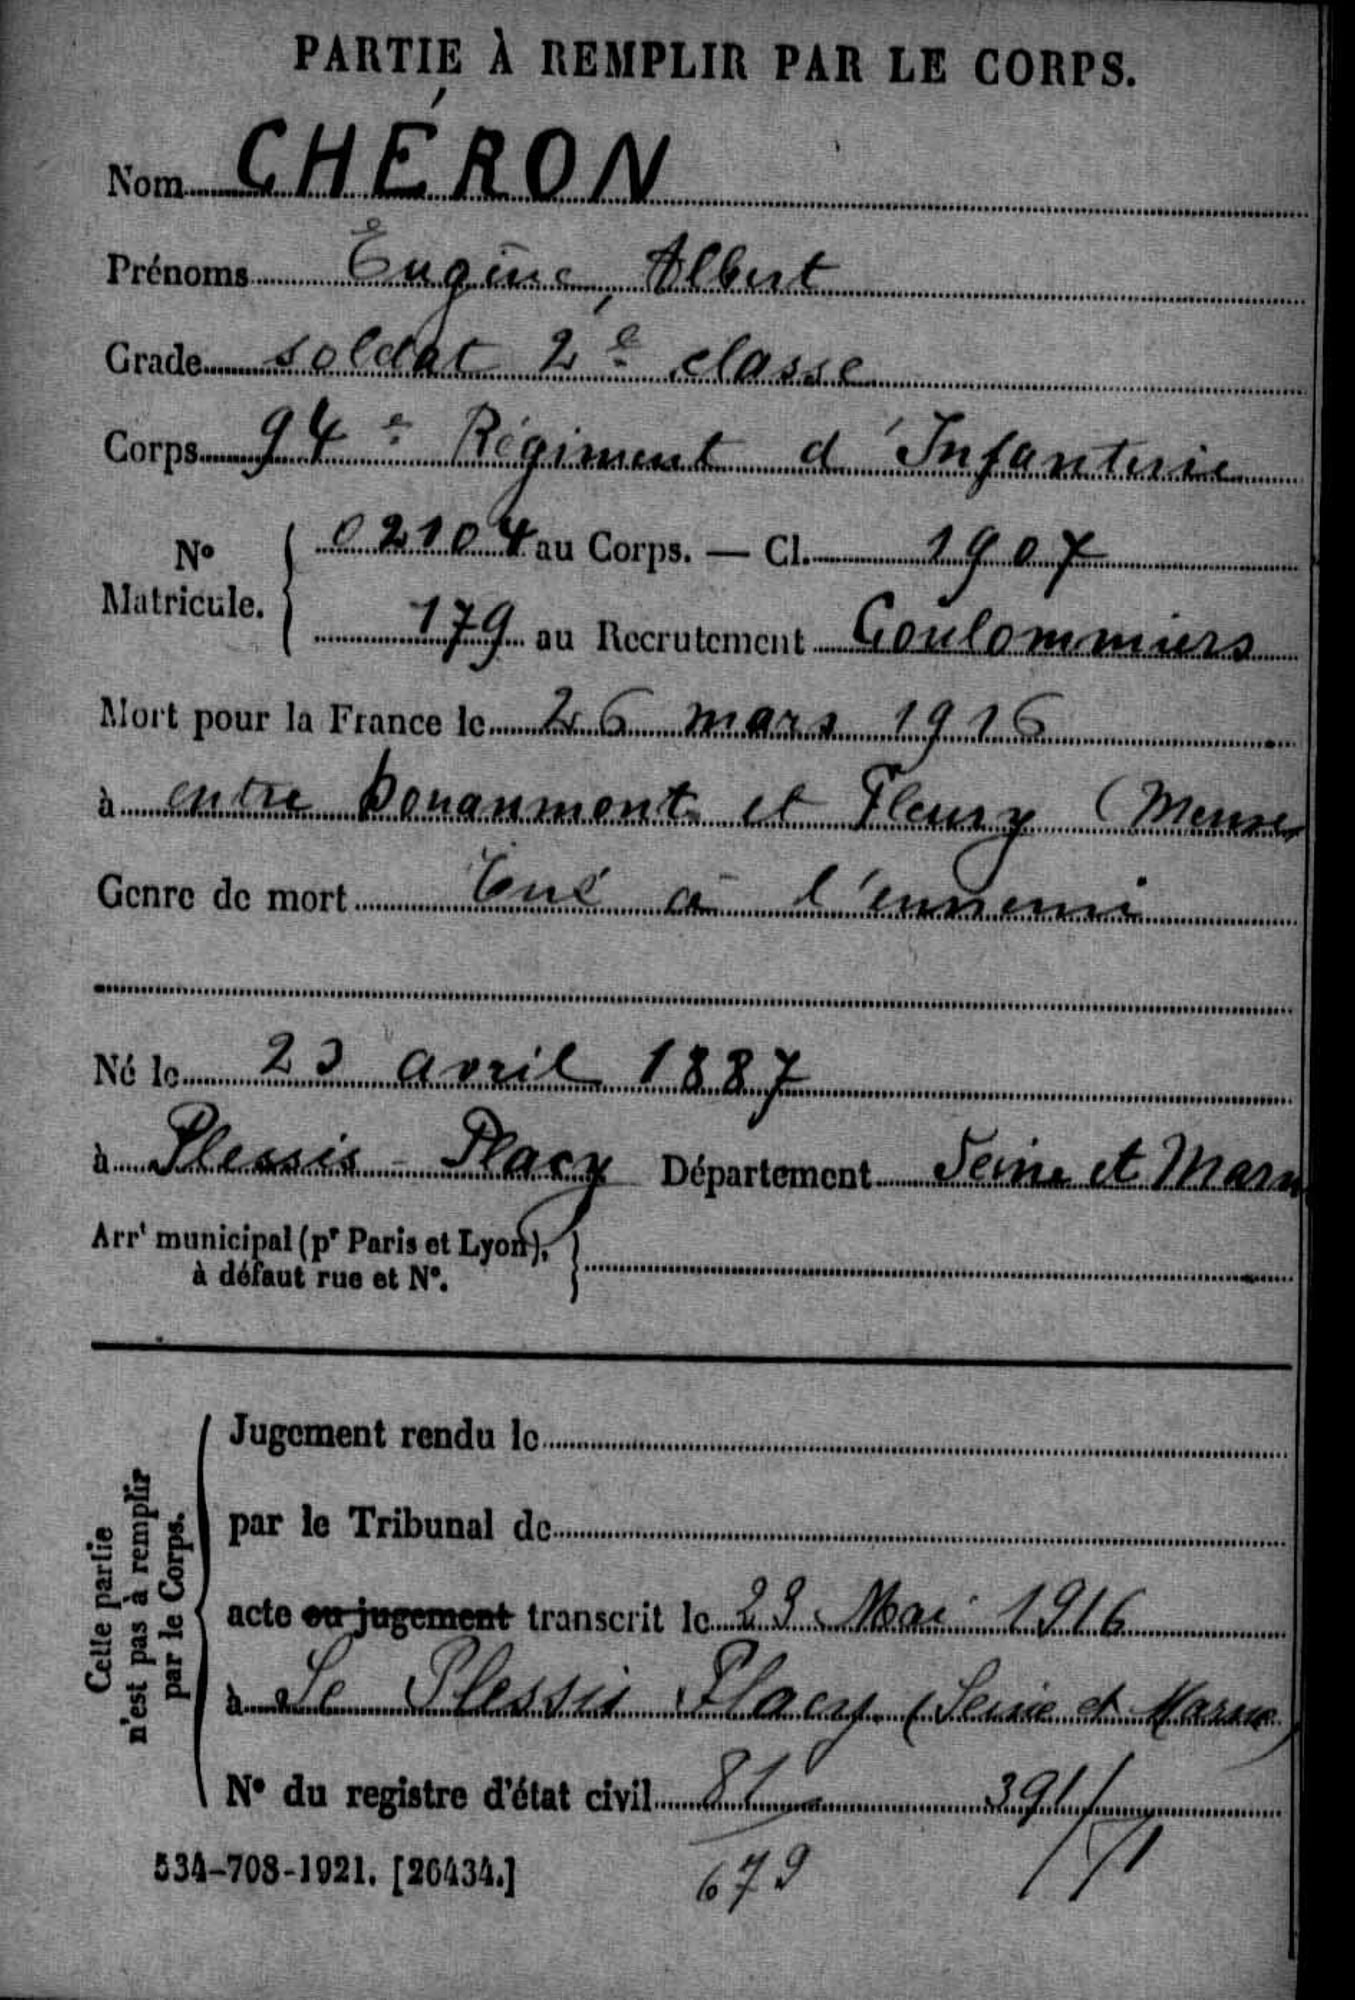 PARTIE À REMPLIR PAR LE CORPS.
Nom CHÉRON
Prénoms Eugène, Albert
Grade soldat 2e classe
Corps 94e Régiment d'Infanterie
No Matricule. { 02104 au Corps. — Cl. 1907
179 au Recrutement Coulommiers
Mort pour la France le 26 mars 1916
à entre Douaumont et Fleury (Meuse)
Genre de mort Tué à l'ennemi
Né le 23 avril 1887
à Plessis-Placy Département Seine et Marne
Arrt municipal (pr Paris et Lyon),
à défaut rue et No.
Cette partie
n'est pas à remplir
par le Corps.
Jugement rendu le
par le Tribunal de
acte ou jugement transcrit le 23 Mai 1916
à Le Plessis Placy (Seine et Marne)
No du registre d'état civil 81 391/
534-708-1921. [26434.] 679